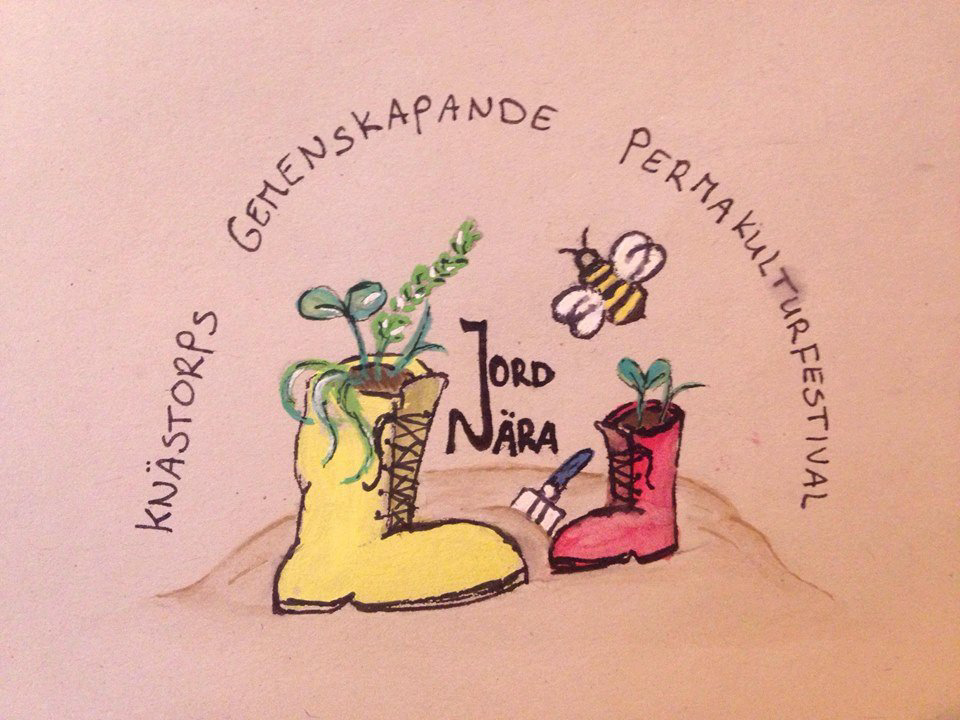 KNÄSTORPS GEMENSKAPANDE PERMAKULTURFESTIVAL
JORD
NÄRA